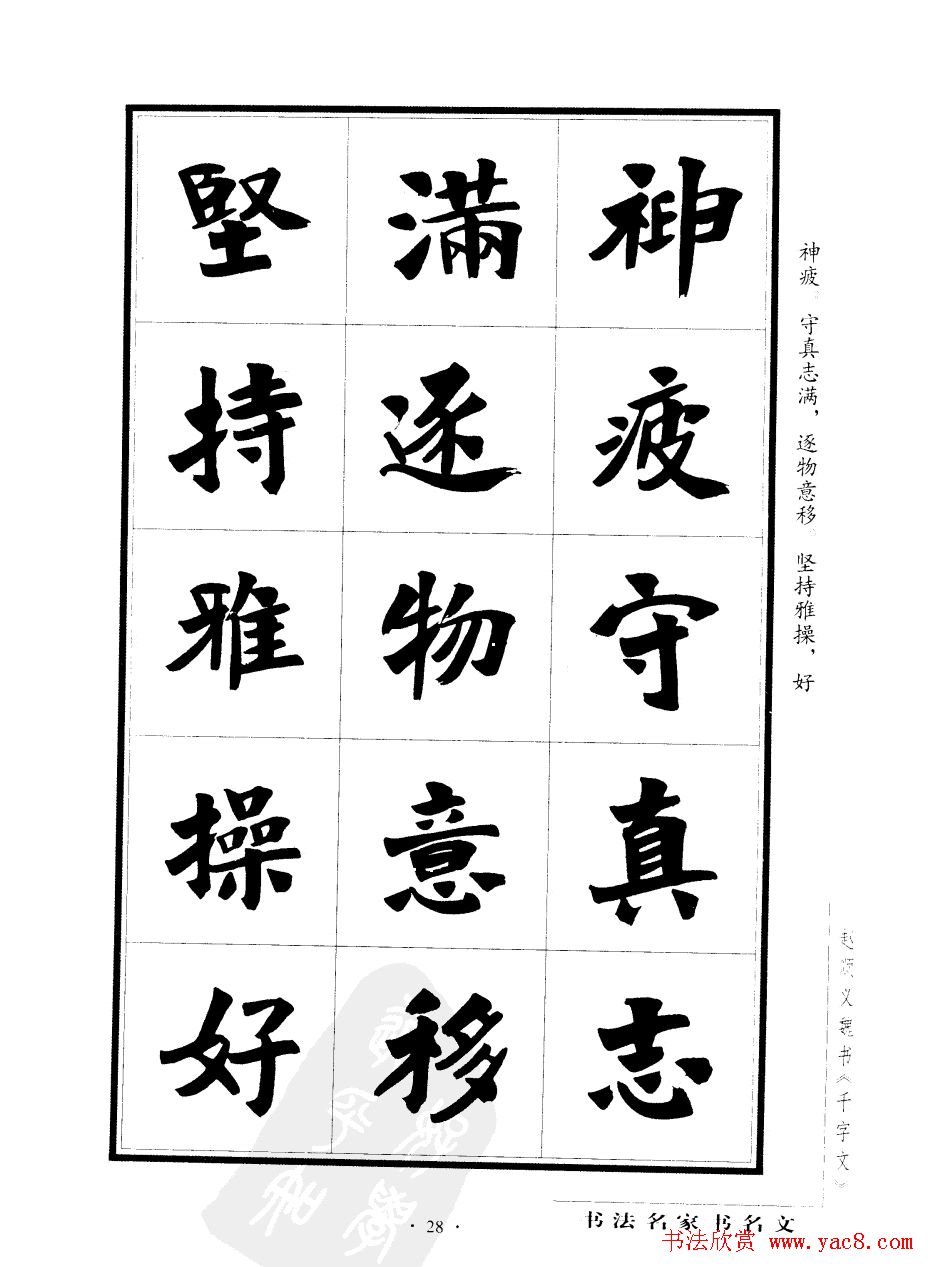 神疲守真志
满逐物意移
堅持雅操好
神疲。守真志满，逐物意移。坚持雅操，好
赵颂义魏书《千字文》
书法名家书名文
· 28 ·
书法欣赏 www.yac8.com